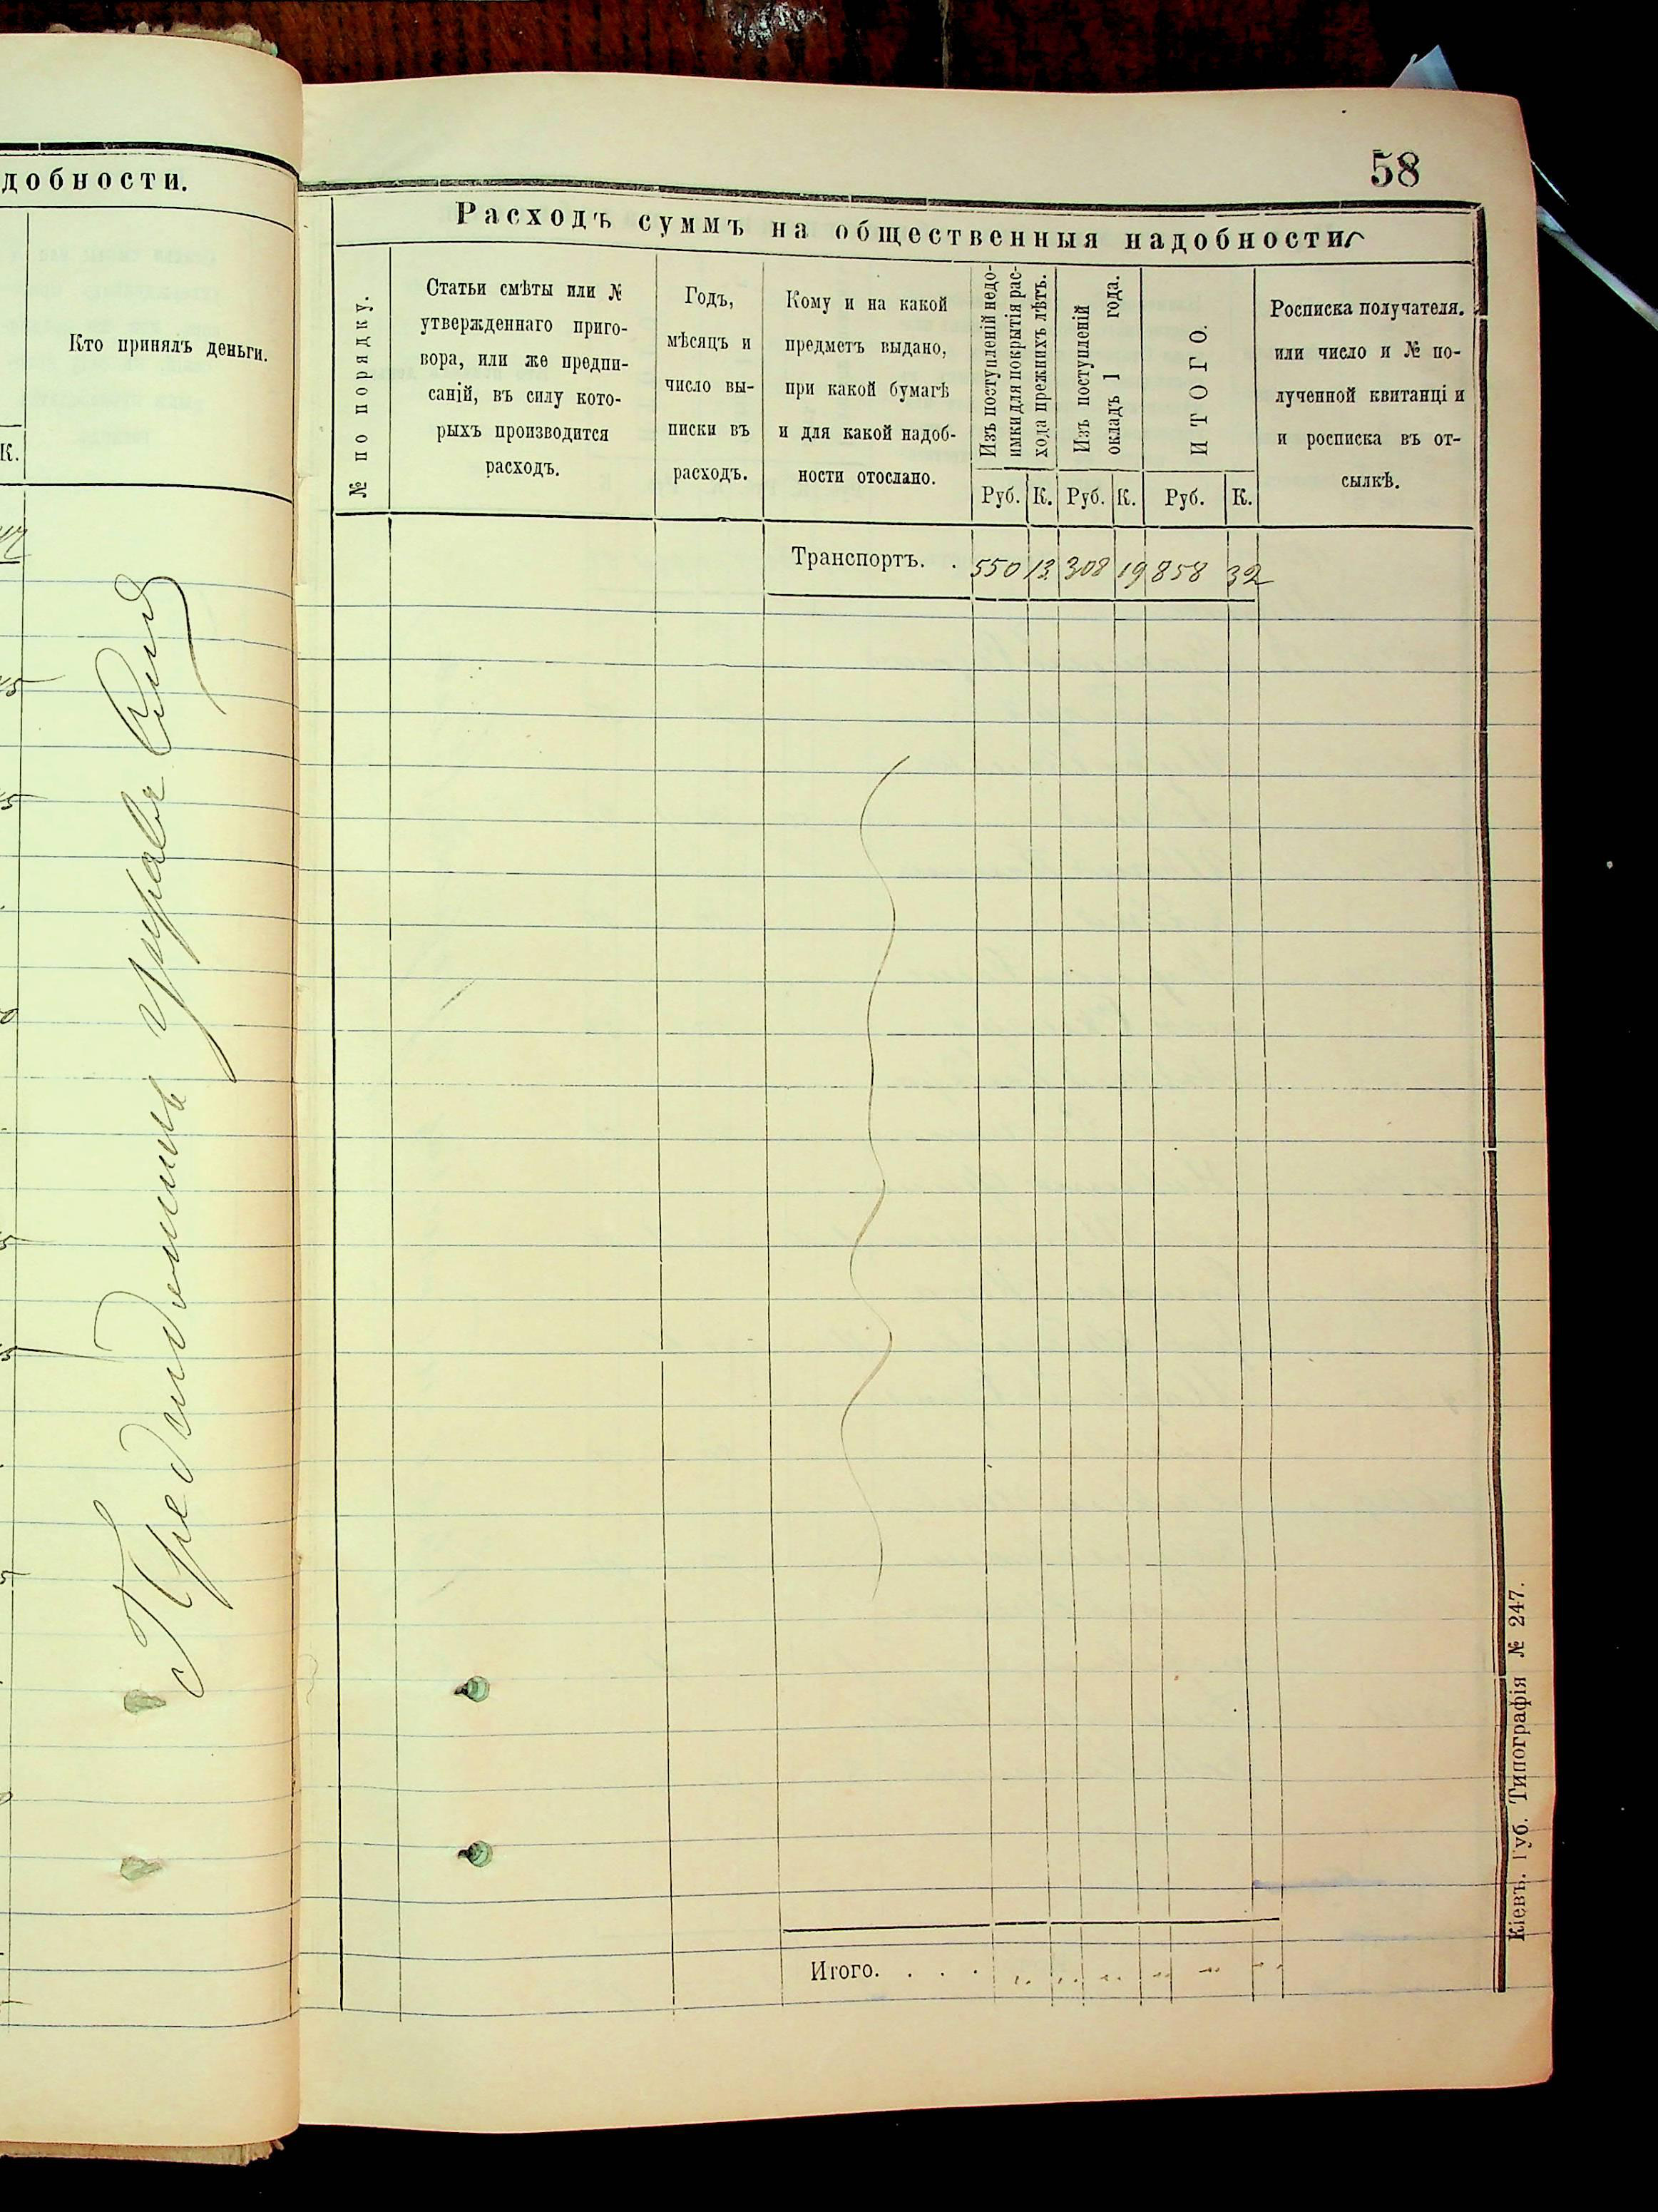 добности.
Кто принялъ деньги.
К.
58
Расходъ суммъ на общественныя надобности
№ по порядку.
Статьи смѣты или №
утвержденнаго приго-
вора, или же предпи-
саній, въ силу кото-
рыхъ производится
расходъ.
Годъ,
мѣсяцъ и
число вы-
писки въ
расходъ.
Кому и на какой
предметъ выдано,
при какой бумагѣ
и для какой надоб-
ности отослано.
Изъ поступленій недо-
имки для покрытія рас-
хода прежнихъ лѣтъ.
Изъ поступленій
окладъ 1 года.
ИТОГО.
Росписка получателя.
или число и № по-
лученной квитанці и
и росписка въ от-
сылкѣ.
Руб. К. Руб. К. Руб. К.
Транспортъ. . 550 13 308 19 858 32
Итого. . . .
Кіевъ. Губ. Типографія № 247.